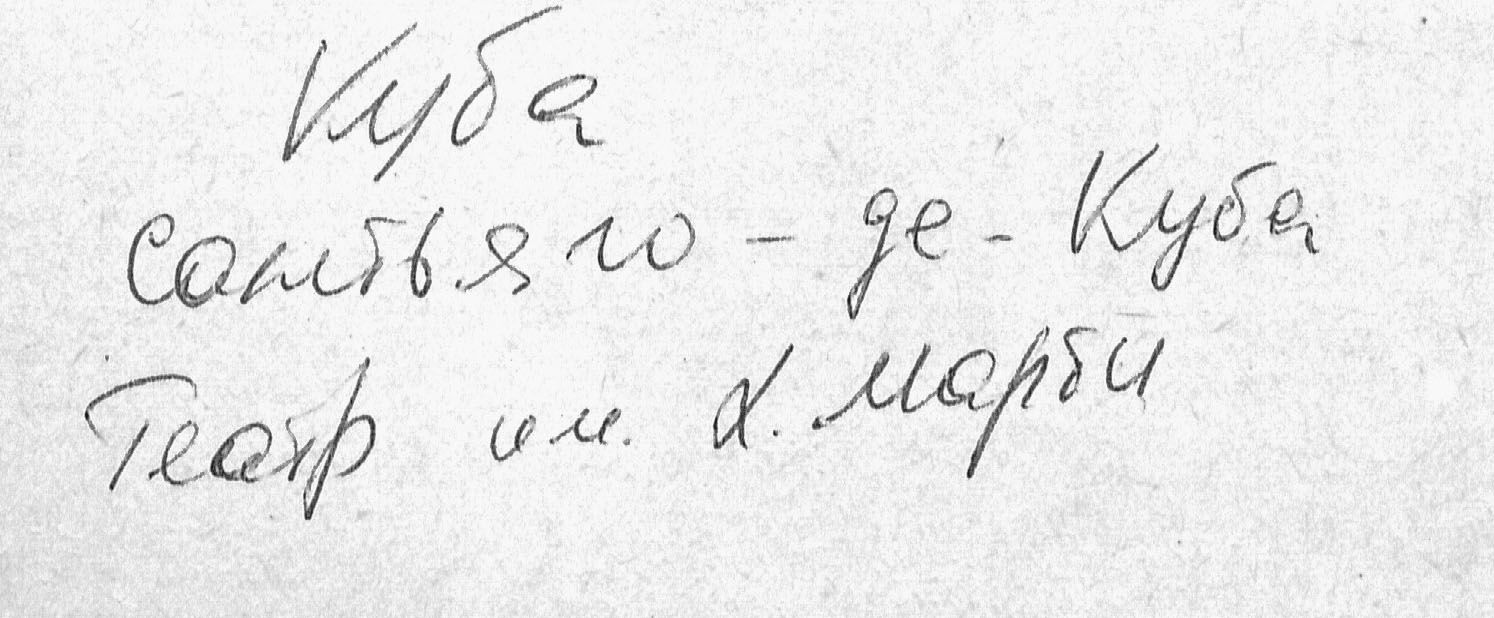 Куба
Сантьяго - де - Куба
Театр им. Х. Марти